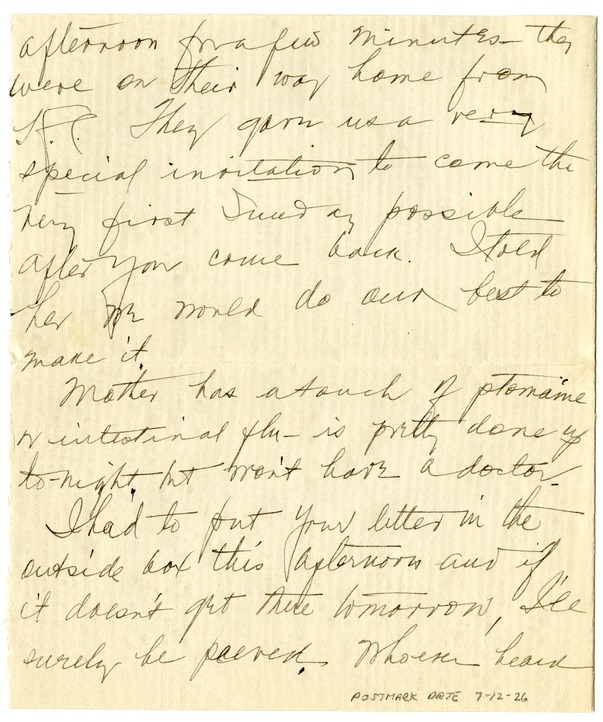 afternoon for a few minutes – they
were on their way home from
K.C. They gave us a very
special invitation to come the
very first Sunday possible
after you come back. I told
her we would do our best to
make it.
Mother has a touch of ptomaine
or intestinal flu – is pretty done up
to-night but won't have a doctor –
I had to put your letter in the
outside box this afternoon and if
it doesn't get there tomorrow, I'll
surely be peeved. Whoever heard
POSTMARK DATE 7-12-26